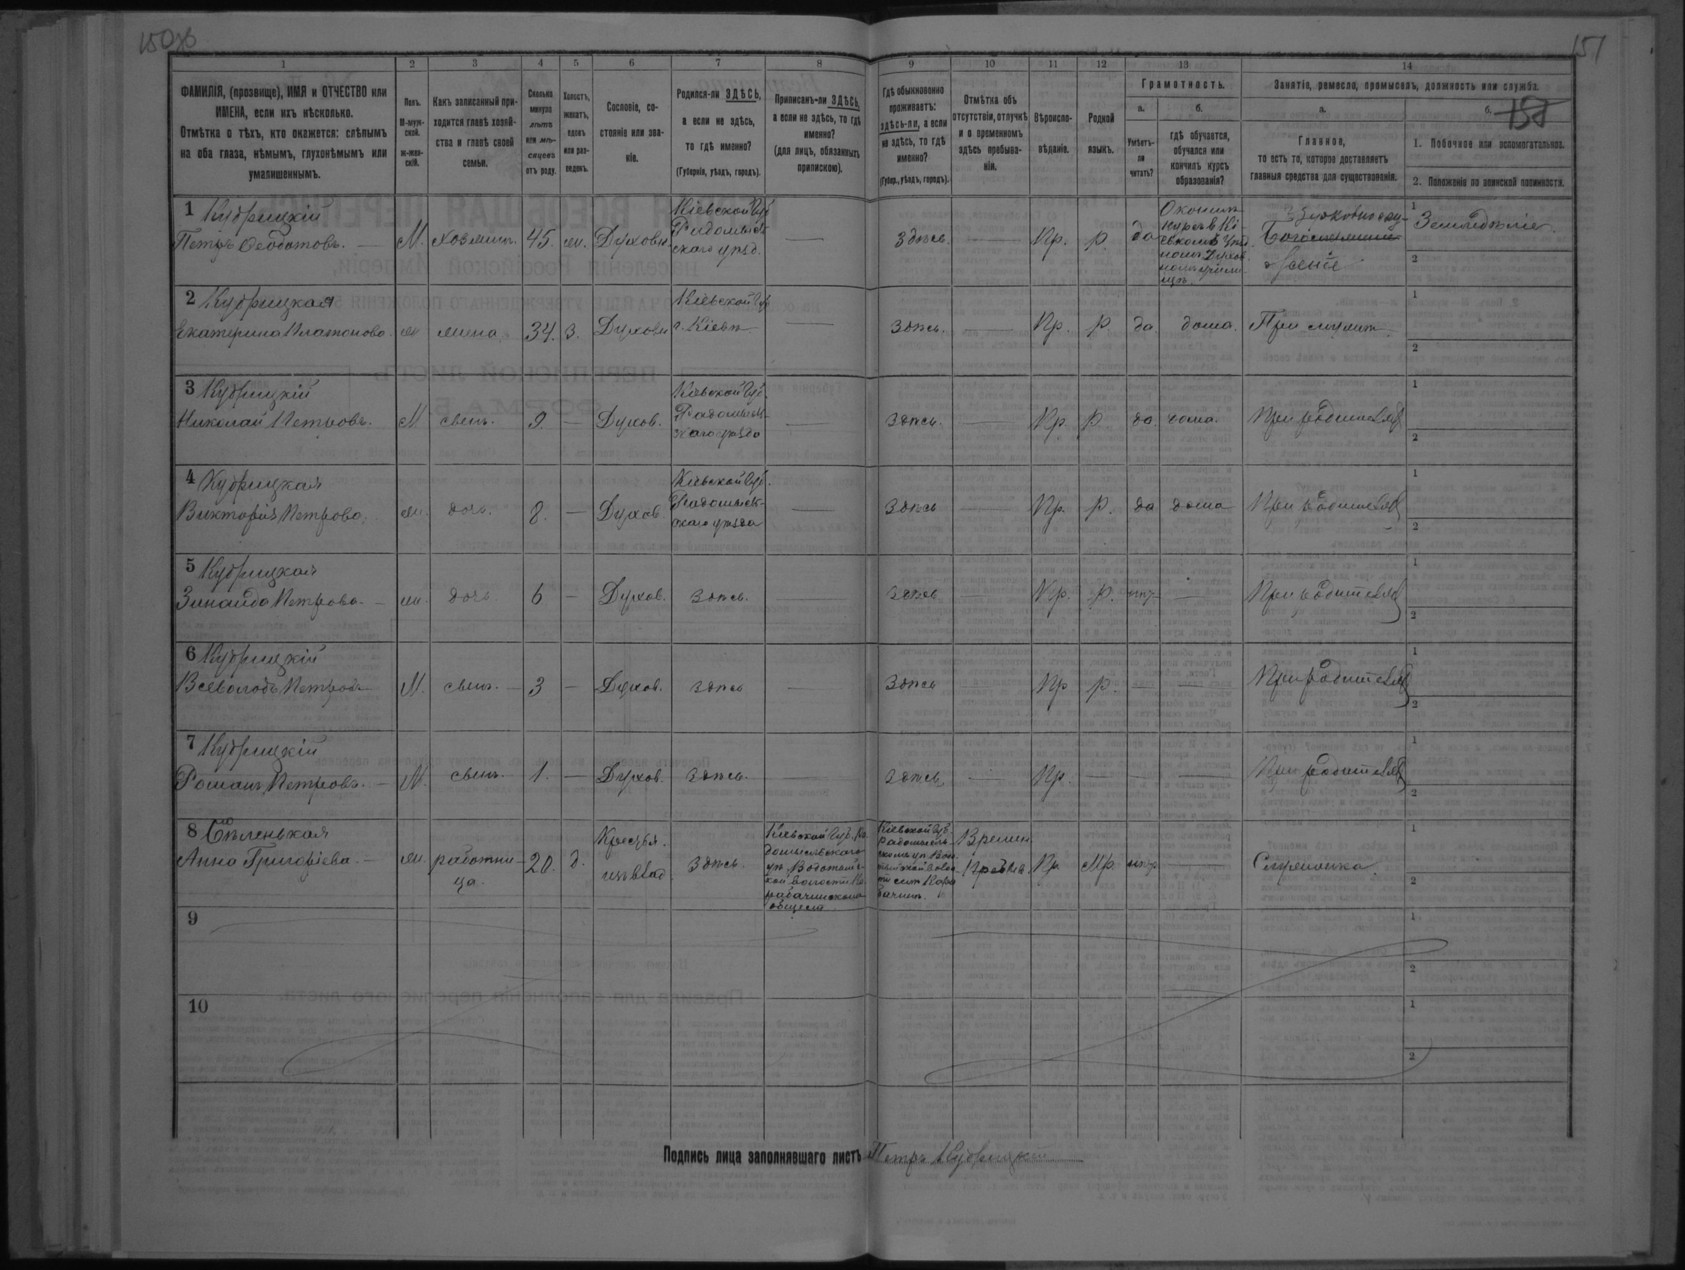 150об
151
1
2
3
4
5
6
7
8
9
10
11
12
13
14
ФАМИЛІЯ, (прозвище), ИМЯ и ОТЧЕСТВО или
ИМЕНА, если ихъ нѣсколько.
Отмѣтка о тѣхъ, кто окажется: слѣпымъ
на оба глаза, нѣмымъ, глухонѣмымъ или
умалишеннымъ.
Полъ.
М-муж-
ской.
ж-жен-
скій.
Какъ записанный при-
ходится главѣ хозяй-
ства и главѣ своей
семьи.
Сколько
минуло
лѣтъ
или мѣ-
сяцевъ
отъ роду.
Холостъ,
женатъ,
вдовъ
или раз-
веденъ.
Сословіе, со-
стояніе или зва-
ніе.
Родился-ли ЗДѢСЬ,
а если не здѣсь,
то гдѣ именно?
(Губернія, уѣздъ, городъ).
Приписанъ-ли ЗДѢСЬ,
а если не здѣсь, то гдѣ
именно?
(для лицъ, обязанныхъ
припискою).
Гдѣ обыкновенно
проживаетъ:
здѣсь-ли, а если
не здѣсь, то гдѣ
именно?
(Губер., уѣздъ, городъ).
Отмѣтка объ
отсутствіи, отлучкѣ
и о временномъ
здѣсь пребыва-
ніи.
Вѣроиспо-
вѣданіе.
Родной
языкъ.
Грамотность.
а.
б.
Умѣетъ-
ли
читать?
гдѣ обучается,
обучался или
кончилъ курсъ
образованія?
Занятіе, ремесло, промыселъ, должность или служба.
а.
б.
Главное,
то есть то, которое доставляетъ
главныя средства для существованія.
1. Побочное или вспомогательное.
2. Положеніе по воинской повинности.
1 Кудрицкій
Петръ Ѳеодотовъ.
М. хозяинъ. 45. ж. Духовн.
Кіевской Губ.
Радомысль-
скаго уѣзд.
здѣсь
Пр. р. да
Окончилъ
курсъ в Кі-
евскомъ Уѣзд-
номъ Духов-
номъ учили-
щѣ
Земледѣліе.
1
2
2 Кудрицкая
Екатерина Платонова.
ж жена. 34. з. Духовн
Кіевской Губ
г. Кіевъ
здѣсь. Пр. р. да дома. При мужѣ
1
2
3 Кудрицкій
Николай Петровъ.
М сынъ. 9 — Духов.
Кіевской Губ.
Радомысль-
скаго уѣзда
здѣсь. Пр. р. да дома. При родителяхъ
1
2
4 Кудрицкая
Викторія Петрова.
ж. дочь. 8. — Духов
Кіевской Губ.
Радомысль-
скаго уѣзда
здѣсь Пр. р. да дома При родителяхъ
1
2
5 Кудрицкая
Зинаида Петрова.
ж. дочь 6 — Духов. здѣсь. здѣсь Пр. р. нѣтъ — При родителяхъ
1
2
6 Кудрицкій
Всеволодъ Петровъ
М. сынъ. — 3 — Духов. здѣсь — здѣсь Пр р. — — При родителяхъ
1
2
7 Кудрицкій
Романъ Петровъ.
М. сынъ. 1. — Духов здѣсь. — здѣсь — Пр. — — — При родителяхъ
1
2
8
Анна Григоріева.
ж. работни-
ца.
20. д.
Крестья.
изъ влад.
здѣсь.
Кіевской Губ. Ра
домысльскаго
Кіевской Губ.
Радомысль-
Времен.
Пребыв.
Пр. Мр. нѣтъ — Служанка.
1
2
9
1
2
10
1
2
Подпись лица заполнявшаго листъ Петръ Кудрицкій